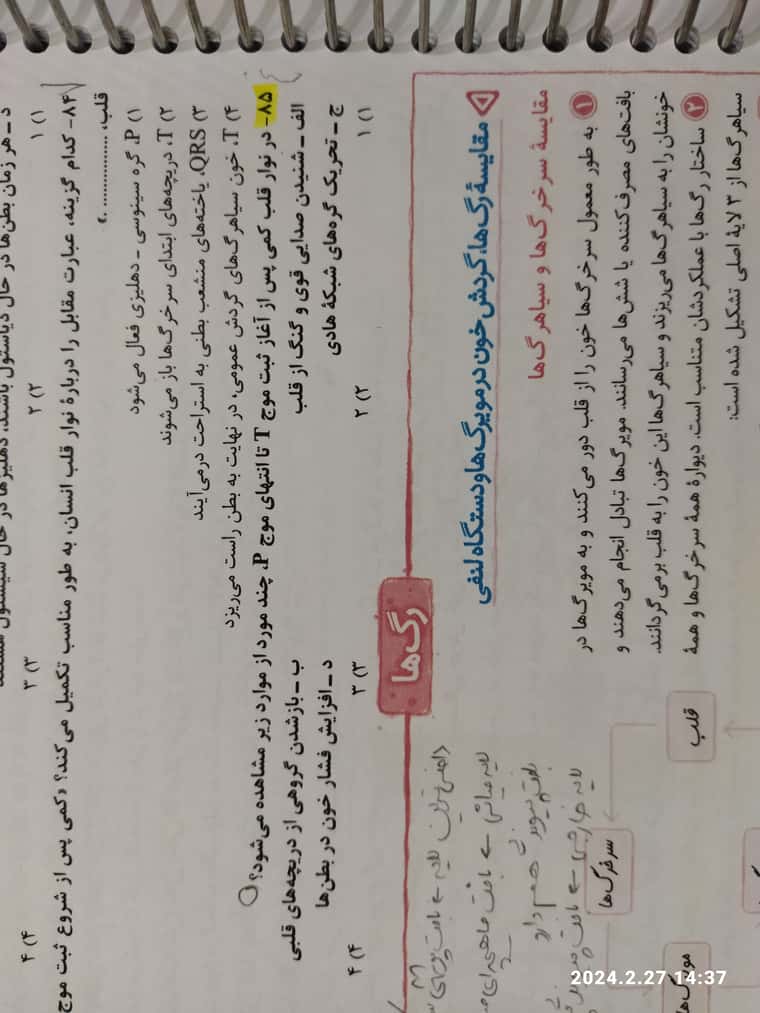 د ـ هر زمان بطن‌ها در حال دیاستول باشند، دهلیزها در حال سیستول هستند
۱) ۱
۲) ۲
۳) ۳
۴) ۴
۸۴- کدام گزینه، عبارت مقابل را دربارهٔ نوار قلب انسان، به طور مناسب تکمیل می‌کند؟ «کمی پس از شروع ثبت موج
قلب، ...............»
۱) P، گره سینوسی ـ دهلیزی فعال می‌شود
۲) T، دریچه‌های ابتدای سرخرگ‌ها باز می‌شوند
۳) QRS، یاخته‌های منشعب بطنی به استراحت درمی‌آیند
۴) T، خون سیاهرگ‌های گردش عمومی، در نهایت به بطن راست می‌ریزد
۸۵- در نوار قلب کمی پس از آغاز ثبت موج T تا انتهای موج P، چند مورد از موارد زیر مشاهده می‌شود؟
الف ـ شنیدن صدایی قوی و گنگ از قلب
ب ـ باز شدن گروهی از دریچه‌های قلبی
ج ـ تحریک گره‌های شبکهٔ هادی
د ـ افزایش فشار خون در بطن‌ها
۱) ۱
۲) ۲
۳) ۳
۴) ۴
رگ‌ها
مقایسهٔ رگ‌ها، گردش خون در مویرگ‌ها و دستگاه لنفی
مقایسهٔ سرخرگ‌ها و سیاهرگ‌ها
۱ به طور معمول سرخرگ‌ها خون را از قلب دور می‌کنند و به مویرگ‌ها در
بافت‌های مصرف‌کننده یا شش‌ها می‌رسانند. مویرگ‌ها تبادل انجام می‌دهند و
خونشان را به سیاهرگ‌ها می‌ریزند و سیاهرگ‌ها این خون را به قلب برمی‌گردانند.
۲ ساختار رگ‌ها با عملکردشان متناسب است. دیوارهٔ همهٔ سرخرگ‌ها و همهٔ
سیاهرگ‌ها از ۳ لایهٔ اصلی تشکیل شده است:
داخلی‌ترین لایه ← بافت پوششی
لایه میانی ← بافت ماهیچه‌ای
بافت پیوندی هم دارد
لایه خارجی ← بافت
قلب
سرخرگ‌ها
مویرگ‌ها
2024.2.27 14:37